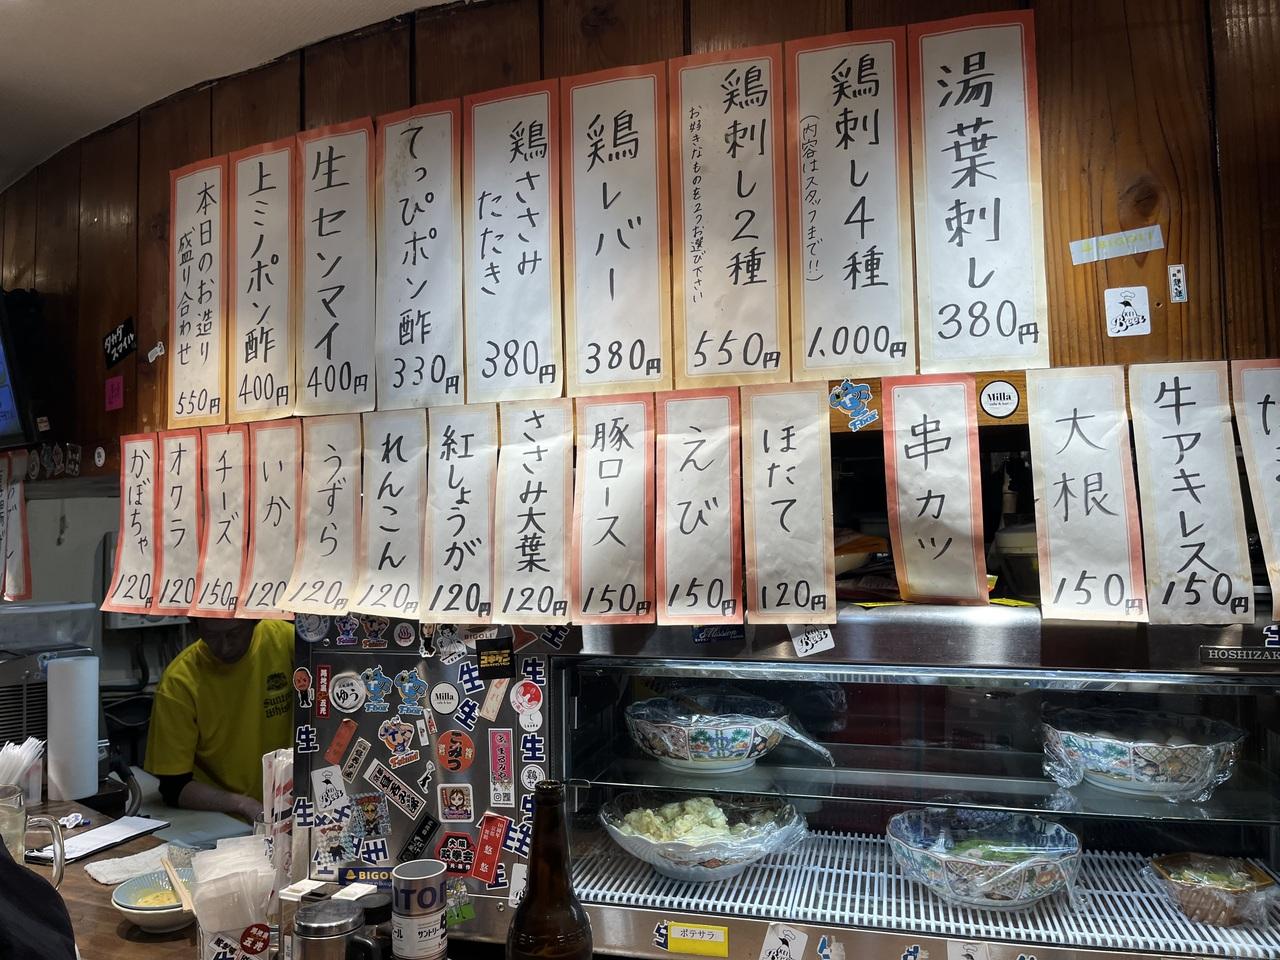 湯葉刺し
380円
鶏刺し4種
(内容はスタッフまで!!)
1.000円
鶏刺し2種
お好きなものを2つお選び下さい
550円
鶏レバー
380円
鶏ささみ
たたき
380円
てっぴポン酢
330円
生センマイ
400円
上ミノポン酢
400円
本日のお造り
盛り合わせ
550円
牛アキレス
150円
大根
150円
串カツ
ほたて
120円
えび
150円
豚ロース
150円
ささみ大葉
120円
紅しょうが
120円
れんこん
120円
うずら
120円
いか
120
チーズ
150円
オクラ
120
かぼちゃ
120
BIGOLI
Beer
Milla
HOSHIZAK
Mission
BIGOLI
ゆう
Milla
生
生
生
生
BIGOLI
ポテサラ
サントリー